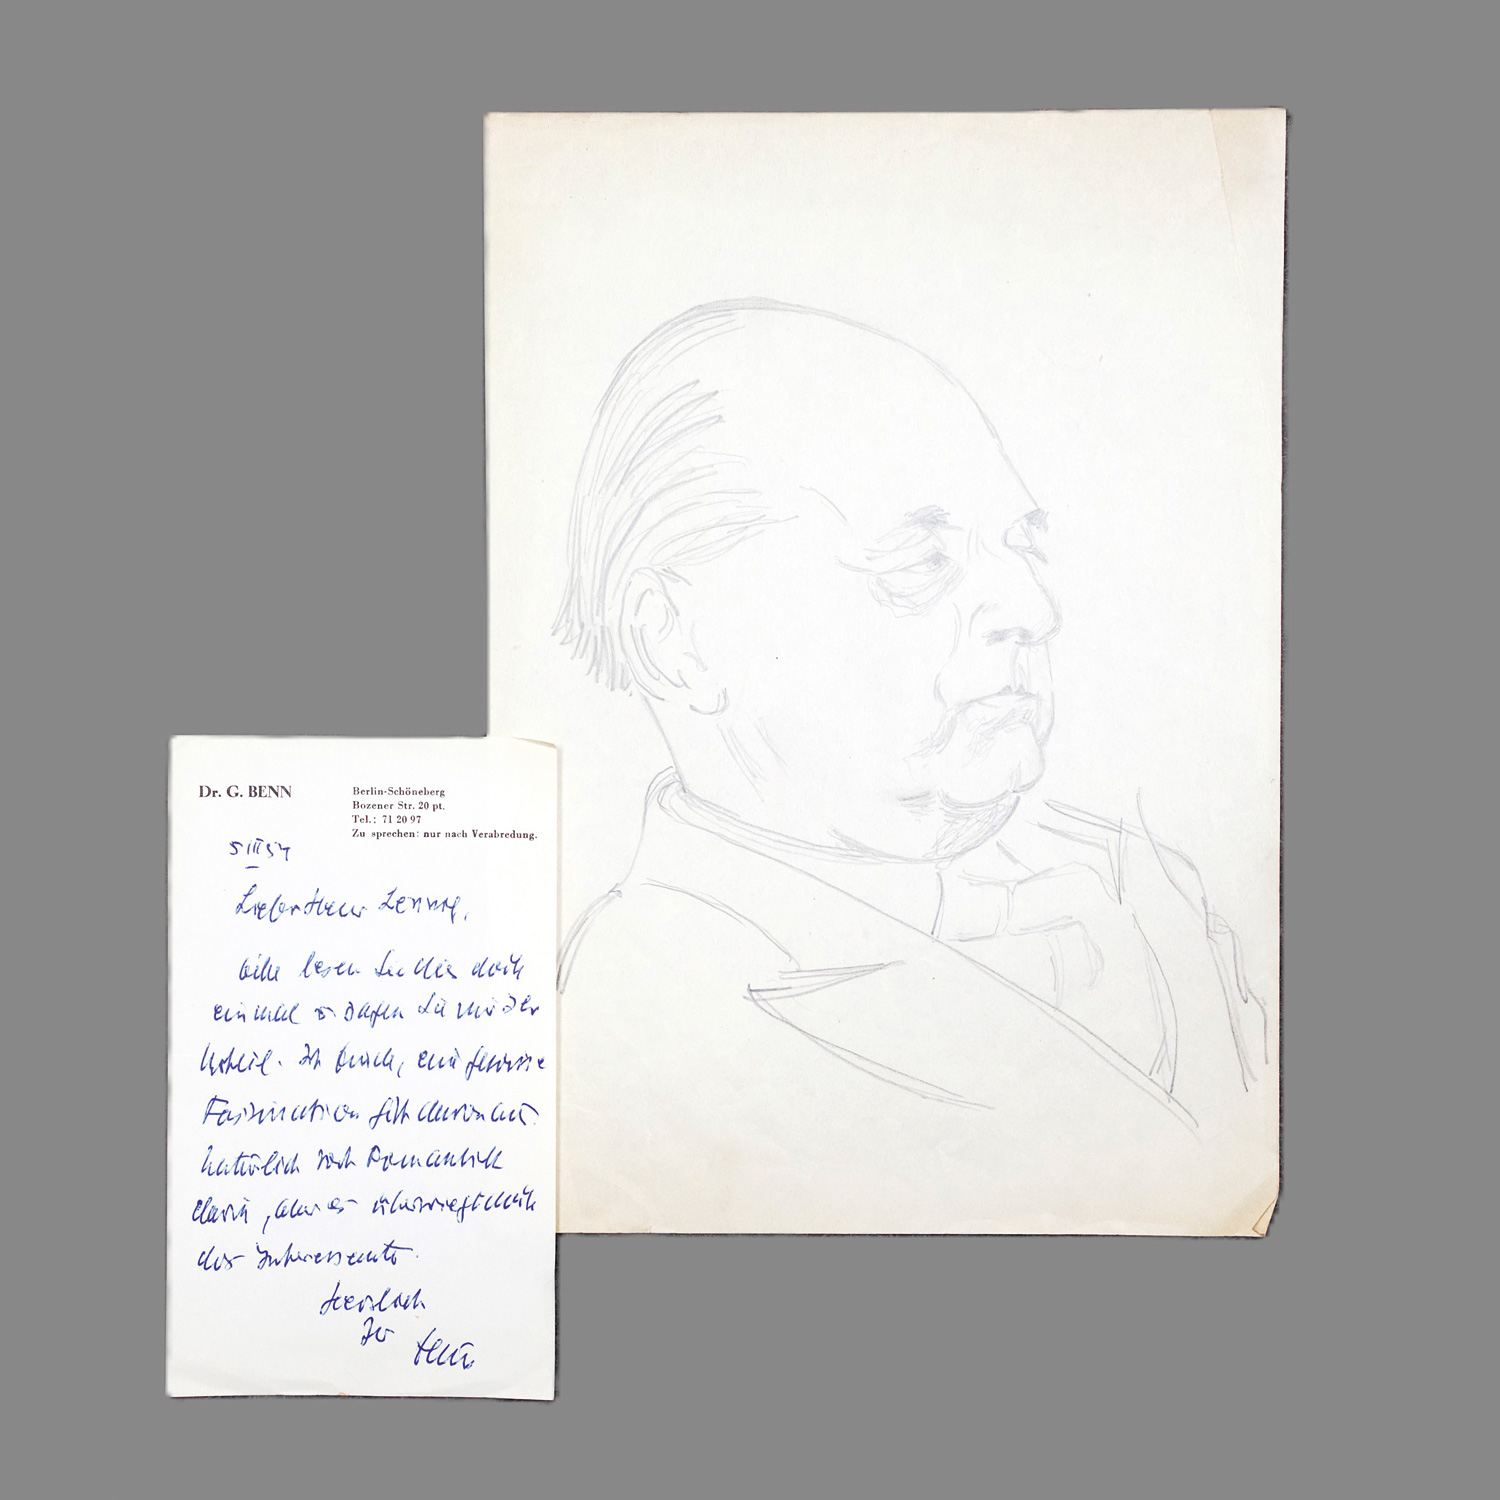 Dr. G. BENN
Berlin-Schöneberg
Bozener Str. 20 pt.
Tel.: 71 20 97
Zu sprechen: nur nach Verabredung.
5 III 54
Lieber Herr Lennig,
bitte lesen Sie dies doch
einmal u. sagen Sie mir Ihr
Urteil. Ich finde, eine gewisse
Faszination geht davon aus.
Natürlich Romantik
darin, aber es überwiegt doch
das Interessante.
Herzlich
Ihr
Benn